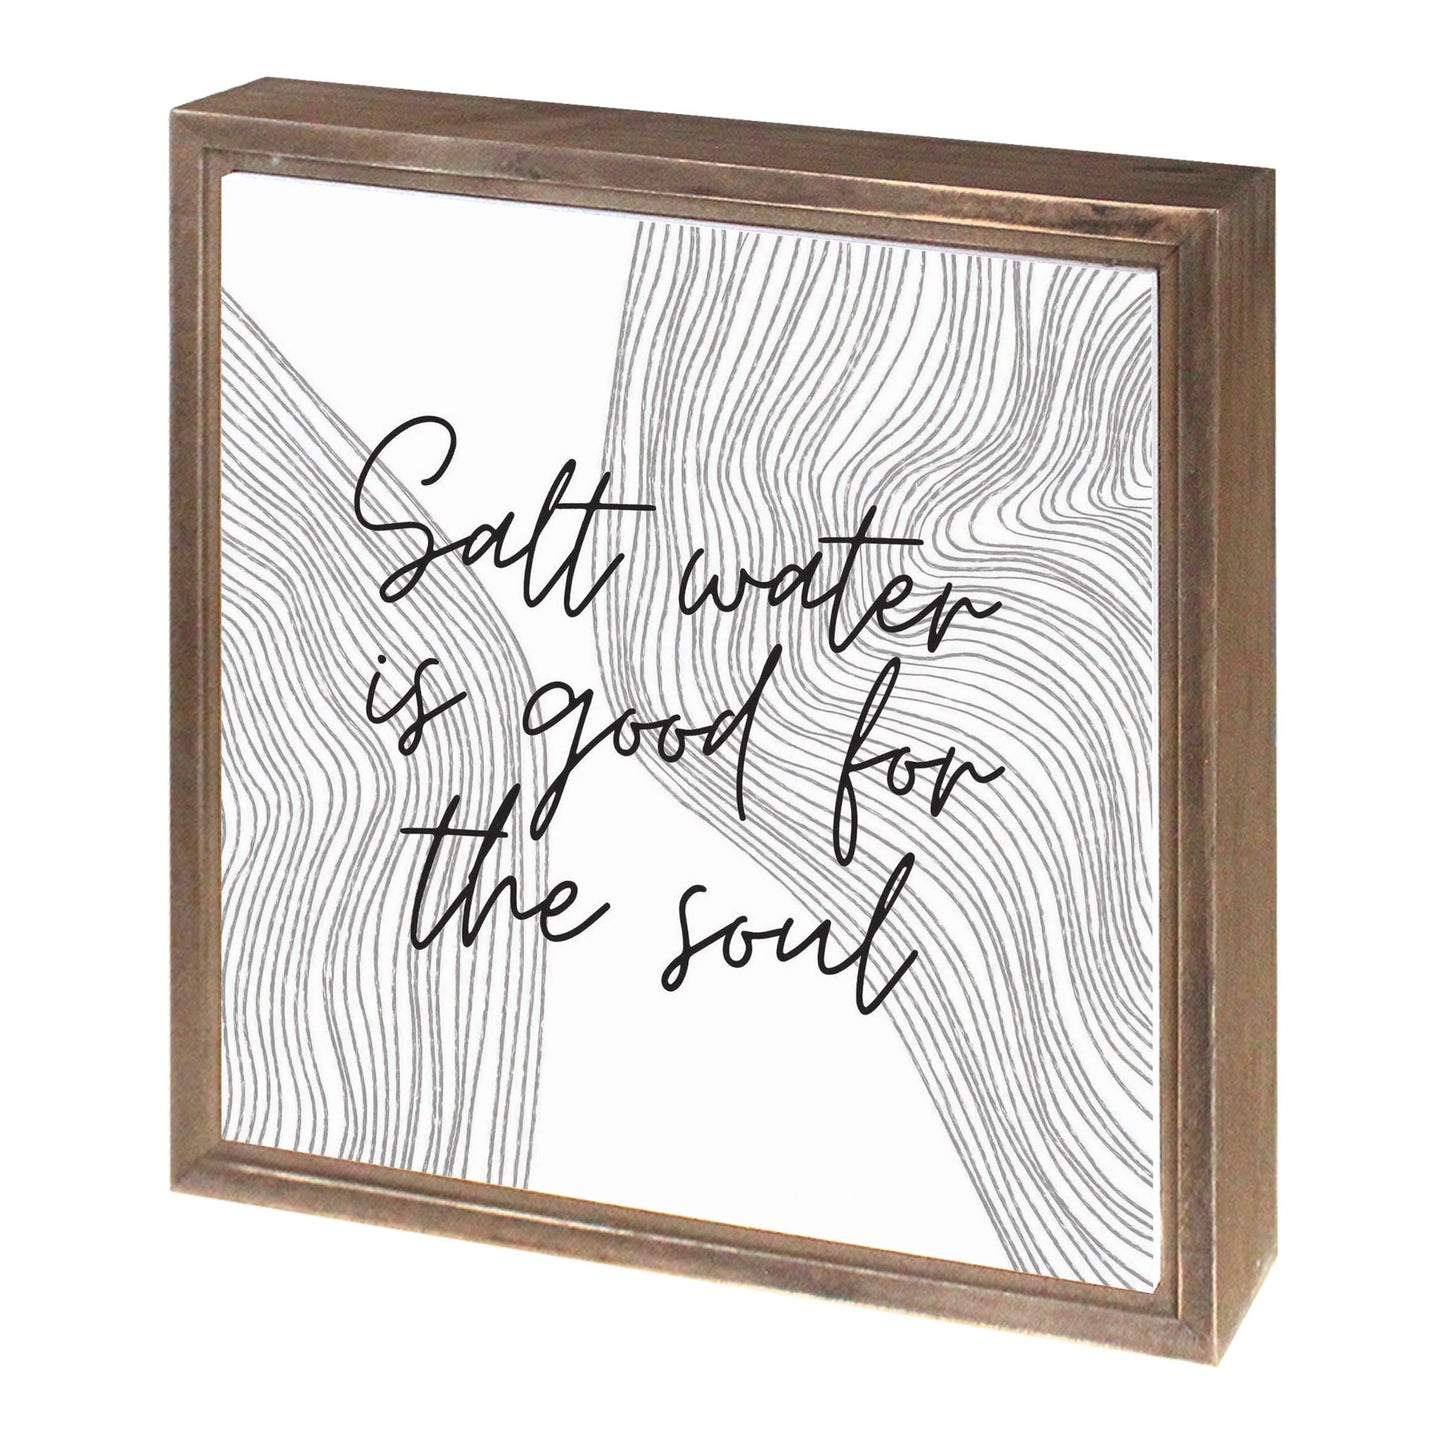 Salt water
is good for
the soul